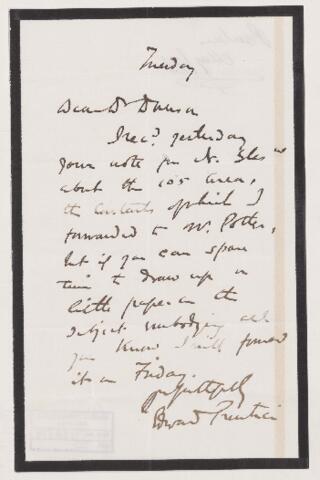 Tuesday
Dear Dr Dawson
I recd. yesterday
your note for Mr.
about the 105 area,
the contents of which I
forwarded to Mr. Potter,
but if you can spare
time to draw up a
little paper on the
subject embodying all
you know I will forward
it on Friday.
Yrs faithfully
Edward